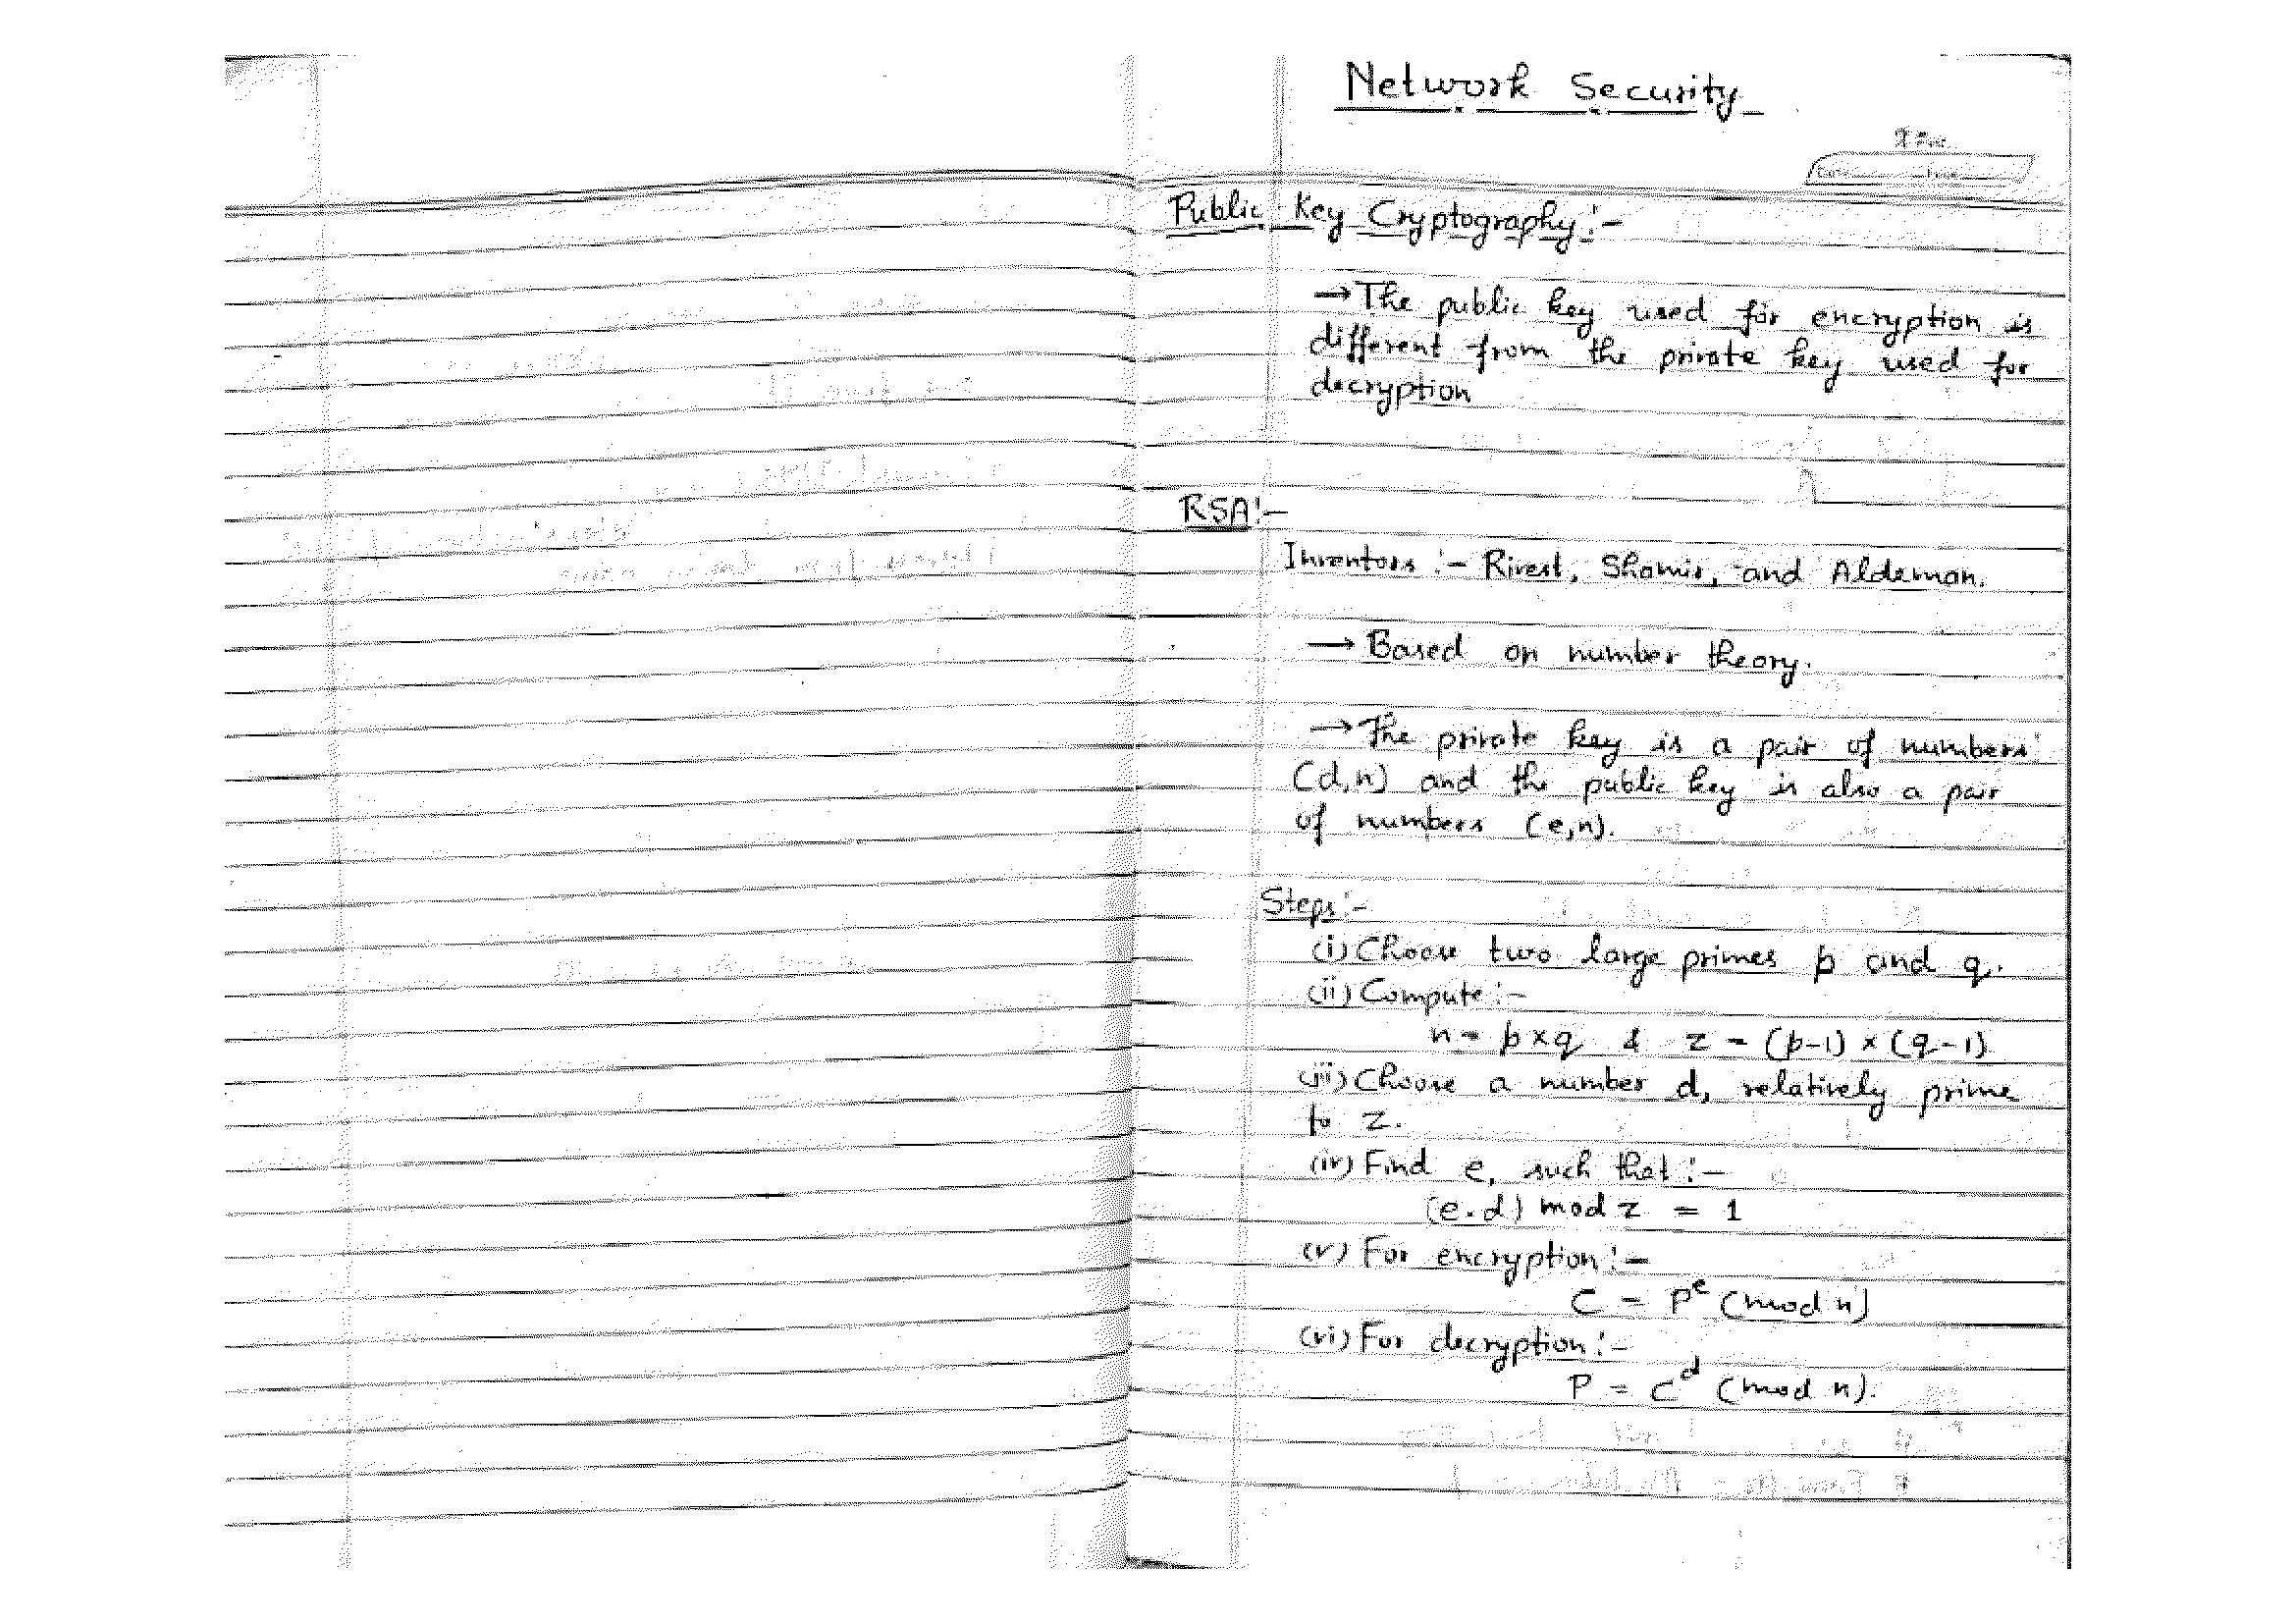 Network Security
Public Key Cryptography:-
→ The public key used for encryption is
different from the private key used for
decryption
RSA:-
Inventors :- Rivest, Shamir, and Aldeman.
→ Based on number theory.
→ The private key is a pair of numbers
(d,n) and the public key is also a pair
of numbers (e,n).
Steps:-
(i) Choose two large primes p and q.
(ii) Compute:-
n = p×q & z = (p-1) × (q-1)
(iii) Choose a number d, relatively prime
to z.
(iv) Find e, such that:-
(e.d) mod z = 1
(v) For encryption:-
C = P^e (mod n)
(vi) For decryption:-
P = C^d (mod n).